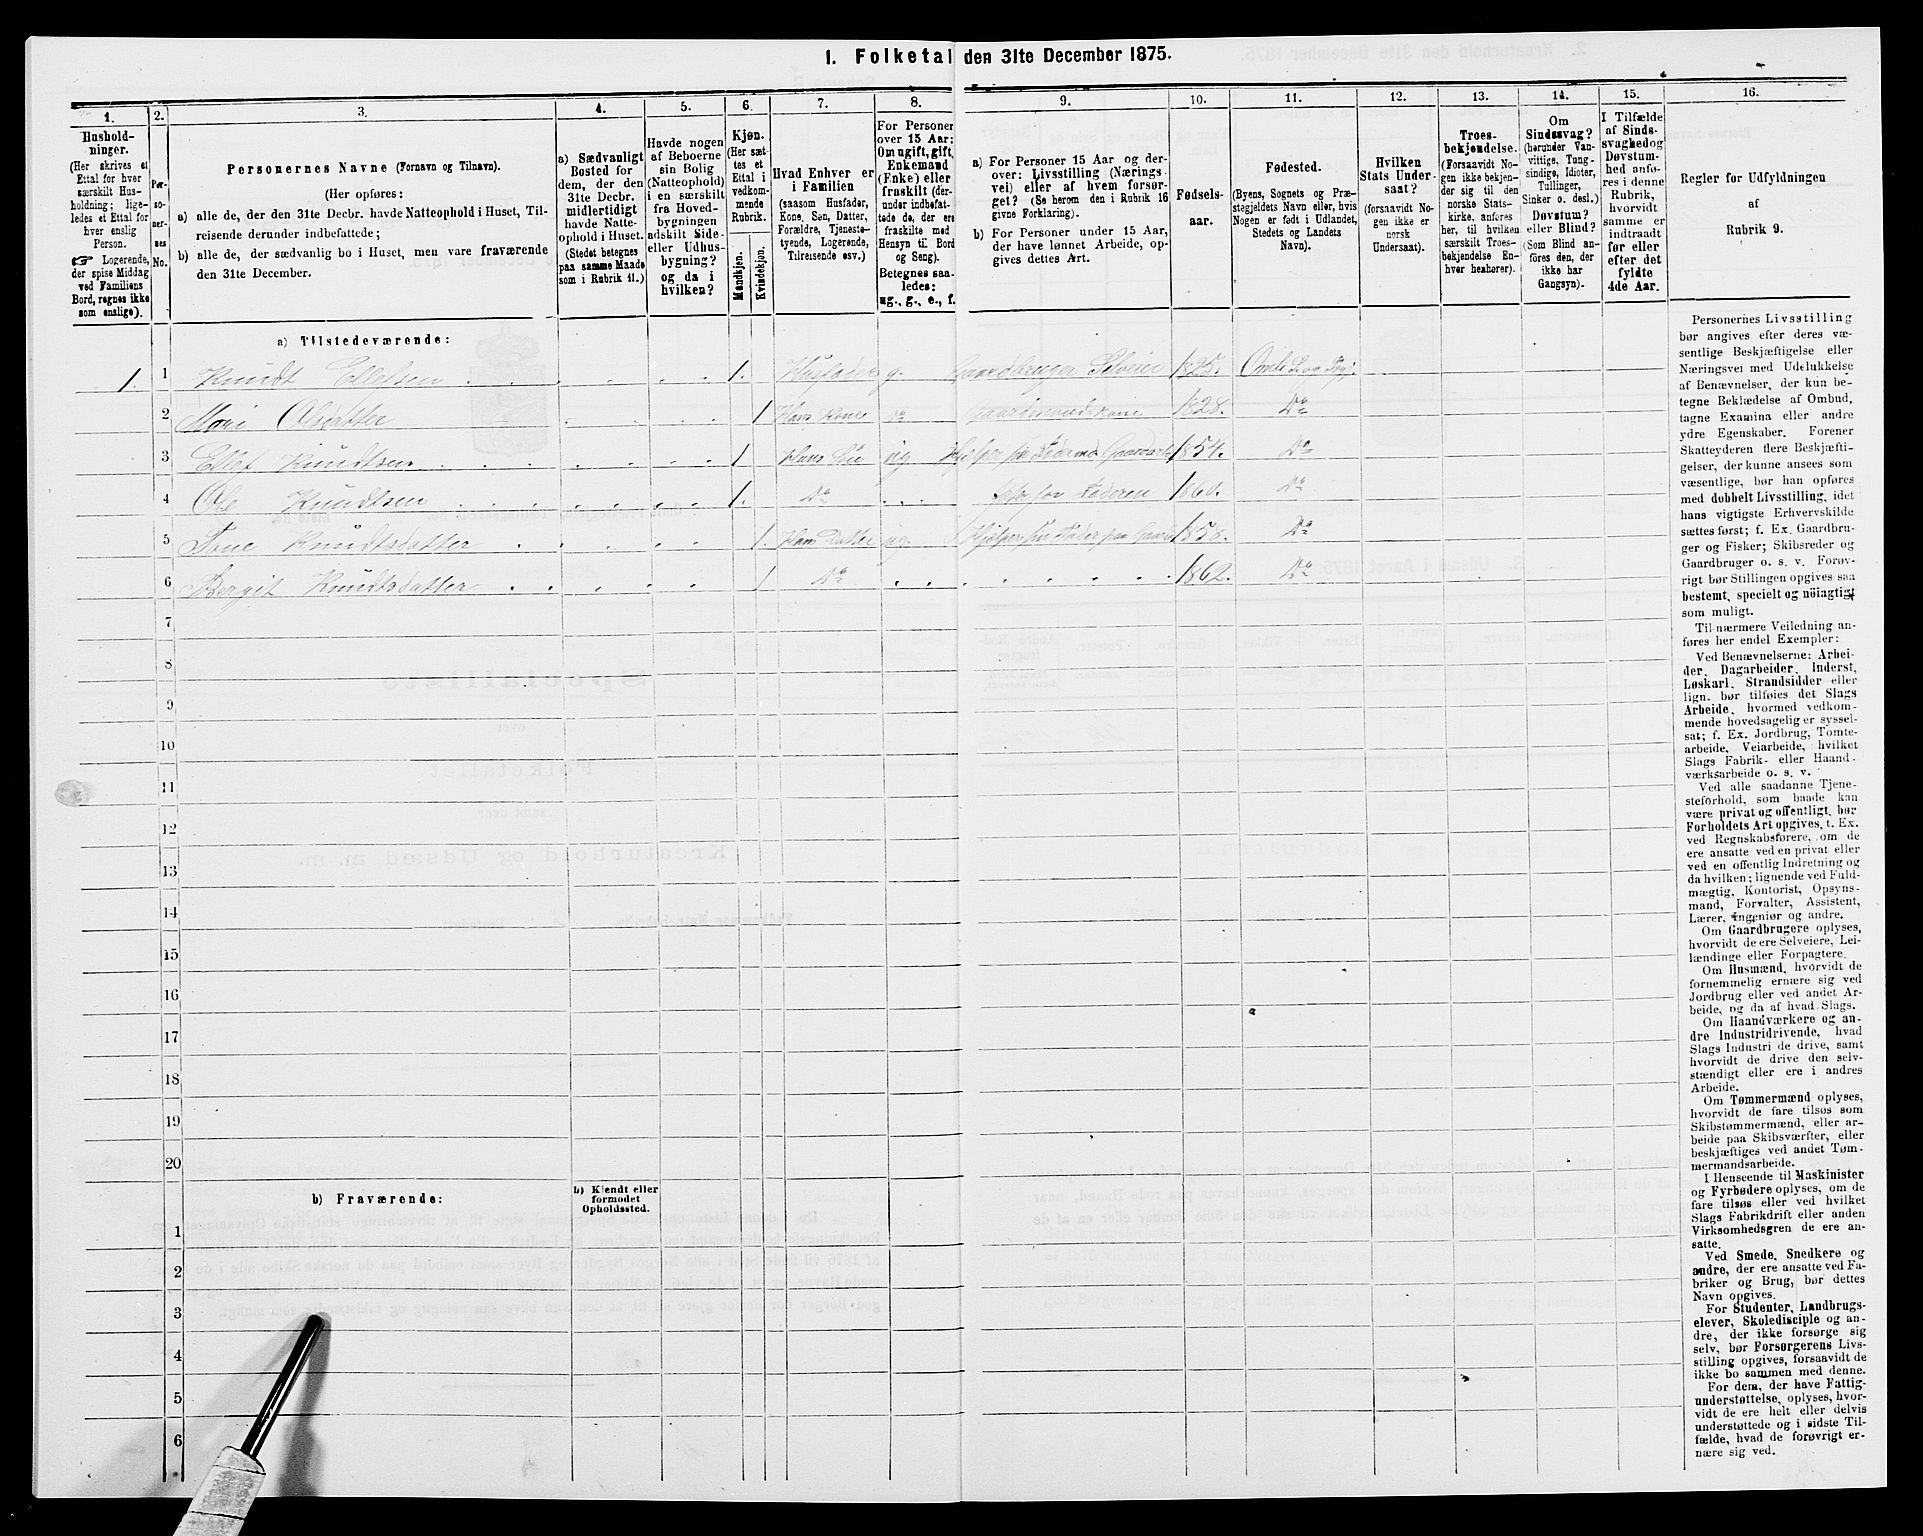 1. Folketal den 31te December 1875.
1. 2. 3. 4. 5. 6. 7. 8. 9. 10. 11. 12. 13. 14. 15. 16.
Hushold-
ninger.
(Her skrives et
Ettal for hver
særskilt Hus-
holdning; lige-
ledes et Ettal for
hver enslig
Person.
☞ Logerende,
der spise Middag
ved Familiens
Bord, regnes ikke
som enslige).
Per-
so-
ner-
nes
No.
Personernes Navne (Fornavn og Tilnavn).
(Her opføres:
a) alle de, der den 31te Decbr. havde Natteophold i Huset, Til-
reisende derunder indbefattede;
b) alle de, der sædvanlig bo i Huset, men vare fraværende
den 31te December.
a) Sædvanligt
Bosted for
dem, der den
31te Decbr.
midlertidigt
havde Natte-
ophold i Huset.
(Stedet betegnes
paa samme Maade
som i Rubrik 11.)
Havde nogen
af Beboerne
sin Bolig
(Natteophold)
i en særskilt
fra Hoved-
bygningen
adskilt Side-
eller Udhus-
bygning?
og da i
hvilken?
Kjøn.
(Her sæt-
tes et
Ettal i
vedkom-
mende
Rubrik.
Mandkjøn.
Kvindekjøn.
Hvad Enhver er
i Familien
(saasom Husfader,
Kone, Søn, Datter,
Forældre, Tjeneste-
tyende, Logerende,
Tilreisende osv.)
For Personer
over 15 Aar:
Om ugift, gift,
Enkemand
(Enke) eller
fraskilt (der-
under indbefat-
tede de, der ere
fraskilte med
Hensyn til Bord
og Seng).
Betegnes saa-
ledes:
ug., g., e., f.
a) For Personer 15 Aar og der-
over: Livsstilling (Nærings-
vei) eller af hvem forsør-
get? (Se herom den i Rubrik 16
givne Forklaring).
b) For Personer under 15 Aar,
der have lønnet Arbeide, op-
gives dettes Art.
Fødsels-
aar.
Fødested.
(Byens, Sognets og Præ-
stegjeldets Navn eller, hvis
Nogen er født i Udlandet,
Stedets og Landets
Navn).
Hvilken
Stats Under-
saat?
(forsaavidt No-
gen ikke er
norsk
Undersaat).
Troes-
bekjendelse.
(Forsaavidt No-
gen ikke bekjen-
der sig til den
norske Stats-
kirke, anføres
her, til hvilken
særskilt Troes-
bekjendelse En-
hver henhører).
Om
Sindssvag?
(herunder Van-
vittige, Tung-
sindige, Idioter,
Tullinger,
Sinker o. desl.)
Døvstum?
eller Blind?
(Som Blind an-
føres den, der
ikke har
Gangsyn).
I Tilfælde
af Sinds-
svaghed og
Døvstum-
hed anfø-
res i denne
Rubrik,
hvorvidt
samme er
indtraadt
før eller
efter det
fyldte
4de Aar.
Regler for Udfyldningen
af
Rubrik 9.
a) Tilstedeværende:
1. 1 Knudt Ellefsen 1. Husfader g. Gaardbruger Selveier 1825.
2 Mari Olsdatter 1 Hans Kone do Gaardmandskone 1828. Do
3 Ellef Knudtsen 1 Hans Søn ug 1854. Do
4 Ole Knudtsen 1. Do 1860. Do
5 Tone Knudtsdatter 1. Hans Datter ug. 1858. Do
6 Bergit Knudtsdatter 1 Do 1862. Do
7
8
9
10
11
12
13
14
15
16
17
18
19
20
b) Fraværende:
b) Kjendt eller
formodet
Opholdssted.
1
2
3
4
5
6
Personernes Livsstilling
bør angives efter deres væ-
sentlige Beskjæftigelse eller
Næringsvei med Udelukkelse
af Benævnelser, der kun be-
tegne Beklædelse af Ombud,
tagne Examina eller andre
ydre Egenskaber. Forener
Skatteyderen flere Beskjæfti-
gelser, der kunne ansees som
væsentlige, bør han opføres
med dobbelt Livsstilling, idet
hans vigtigste Erhvervskilde
sættes først; f. Ex. Gaardbru-
ger og Fisker; Skibsreder og
Gaardbruger o. s. v. Forøv-
rigt bør Stillingen opgives saa
bestemt, specielt og nöiagtigt
som muligt.
Til nærmere Veiledning an-
føres her endel Exempler:
Ved Benævnelserne: Arbei-
der, Dagarbeider, Inderst,
Løskarl, Strandsidder eller
lign. bør tilføies det Slags
Arbeide, hvormed vedkom-
mende hovedsagelig er syssel-
sat; f. Ex. Jordbrug, Tomte-
arbeide, Veiarbeide, hvilket
Slags Fabrik- eller Haand-
værksarbeide o. s. v.
Ved alle saadanne Tjene-
steforhold, som baade kan
være privat og offentligt, bør
Forholdets Art opgives, t. Ex.
ved Regnskabsførere, om de
ere ansatte ved en privat eller
ved en offentlig Indretning og
da hvilken; lignende ved Fuld-
mægtig, Kontorist, Opsyns-
mand, Forvalter, Assistent,
Lærer, Ingeniør og andre.
Om Gaardbrugere oplyses,
hvorvidt de ere Selveiere, Lei-
lændinge eller Forpagtere.
Om Husmænd, hvorvidt de
fornemmelig ernære sig ved
Jordbrug eller ved andet Ar-
beide, og da af hvad Slags.
Om Haandværkere og an-
dre Industridrivende, hvad
Slags Industri de drive, samt
hvorvidt de drive den selv-
stændigt eller ere i andres
Arbeide.
Om Tømmermænd oplyses,
hvorvidt de fare tilsøs som
Skibstømmermænd, eller ar-
beide paa Skibsværfter, eller
beskjæftiges ved andet Tøm-
mermandsarbeide.
I Henseende til Maskinister
og Fyrbødere oplyses, om de
fare tilsøs eller ved hvilket
Slags Fabrikdrift eller anden
Virksomhedsgren de ere an-
satte.
Ved Smede, Snedkere og
andre, der ere ansatte ved Fa-
briker og Brug, bør dettes
Navn opgives.
For Studenter, Landbrugs-
elever, Skoledisciple og an-
dre, der ikke forsørge sig
selv, bør Forsørgerens Livs-
stilling opgives, forsaavidt de
ikke bo sammen med denne.
For dem, der have Fattig-
understøttelse, oplyses, hvor-
vidt de ere helt eller delvis
understøttede og i sidste Til-
fælde, hvad de forøvrigt er-
nære sig ved.